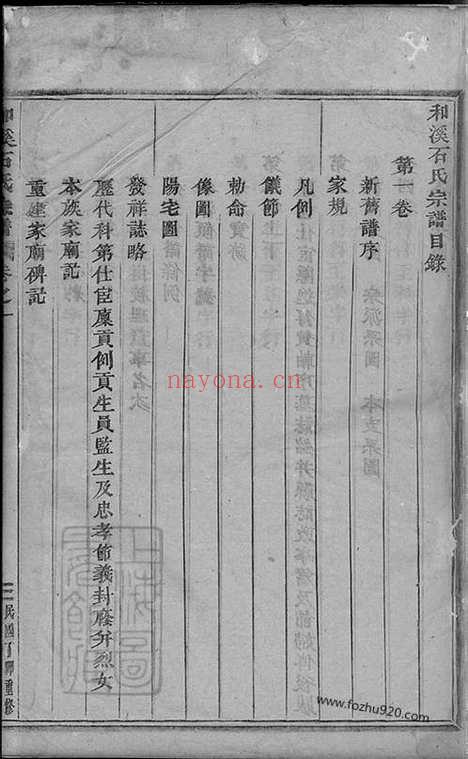 和溪石氏宗譜目錄
第一卷
新舊譜序
家規
凡例
儀節
勅命
像圖
陽宅圖
發祥誌略
歷代科第仕宦廩貢例貢生員監生及忠孝節義封廕弁烈女
本族家廟記
重建家廟碑記
和溪石氏宗譜
卷之一
民國丁卯重修
nayona.cn
www.fozhu920.com